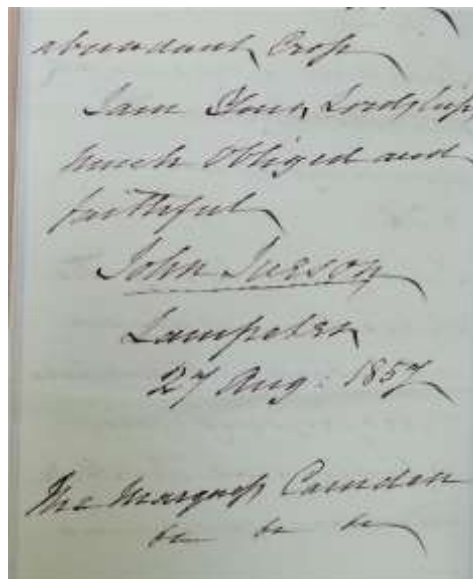 abundant Crop
I am Your Lordships
much obliged and
faithful
John Iveson
Lampeter
27 Aug: 1857
The Marquess Camden